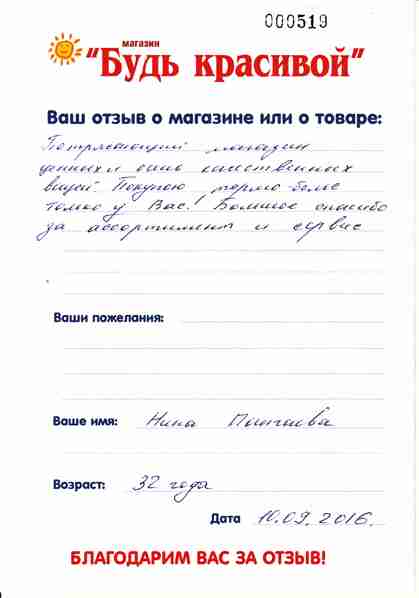 000519
магазин
"Будь красивой"
Ваш отзыв о магазине или о товаре:
Потрясающий магазин
вещей. Покупаю термо белье
только у Вас! Большое спасибо
за ассортимент и сервис
Ваши пожелания:
Ваше имя: Нина
Возраст: 32 года
Дата 10.09.2016.
БЛАГОДАРИМ ВАС ЗА ОТЗЫВ!